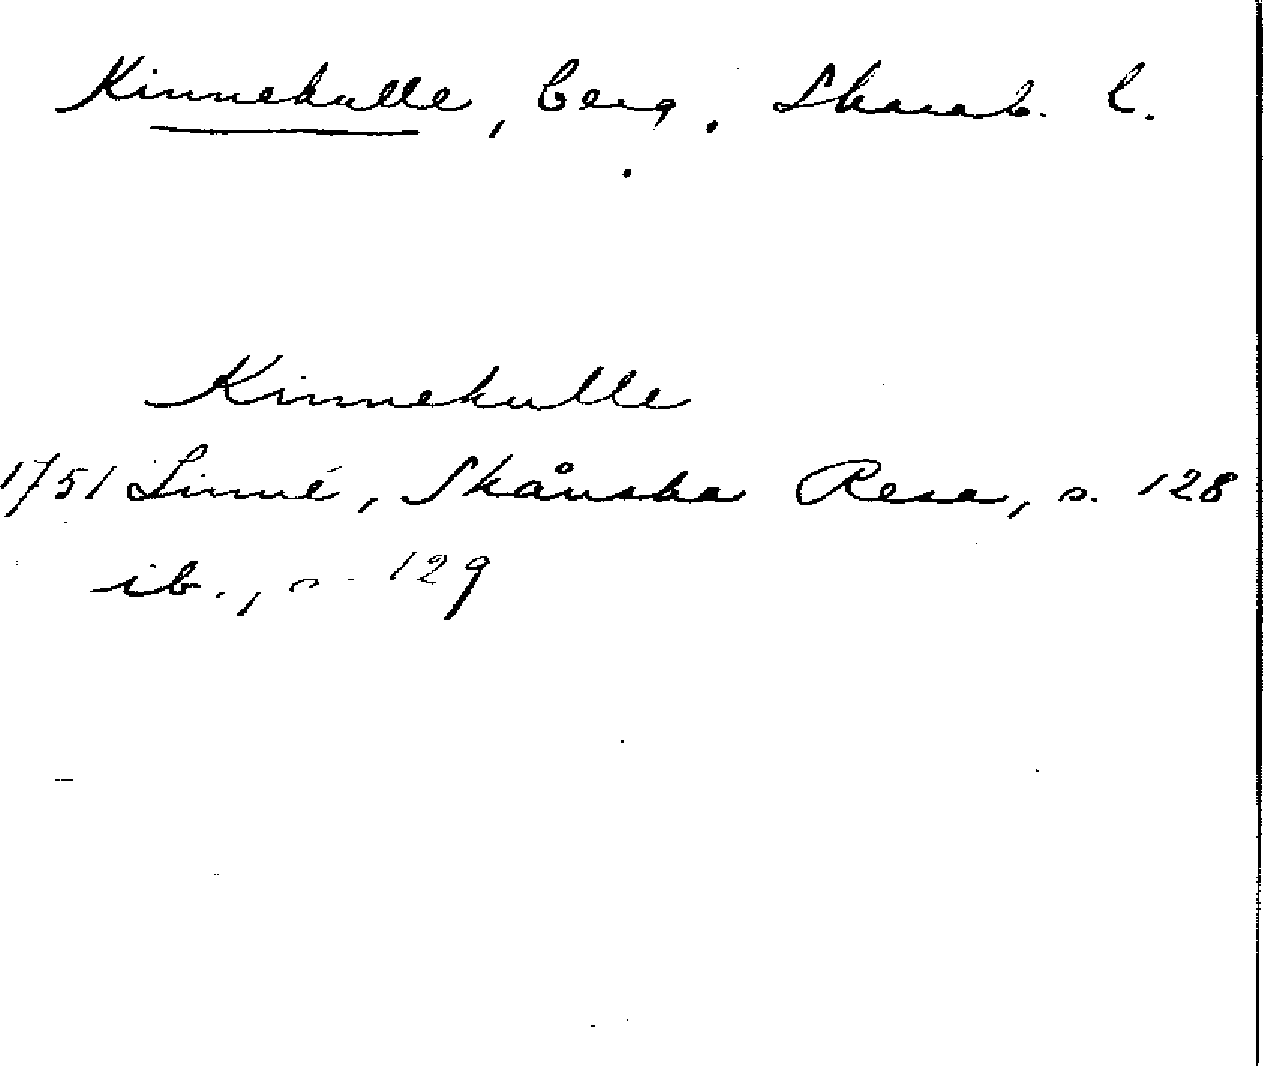 Kinnekulle, berg. Skarab. l.
Kinnekulle
1751 Linné, Skånska Resa, s. 128
ib., s. 129